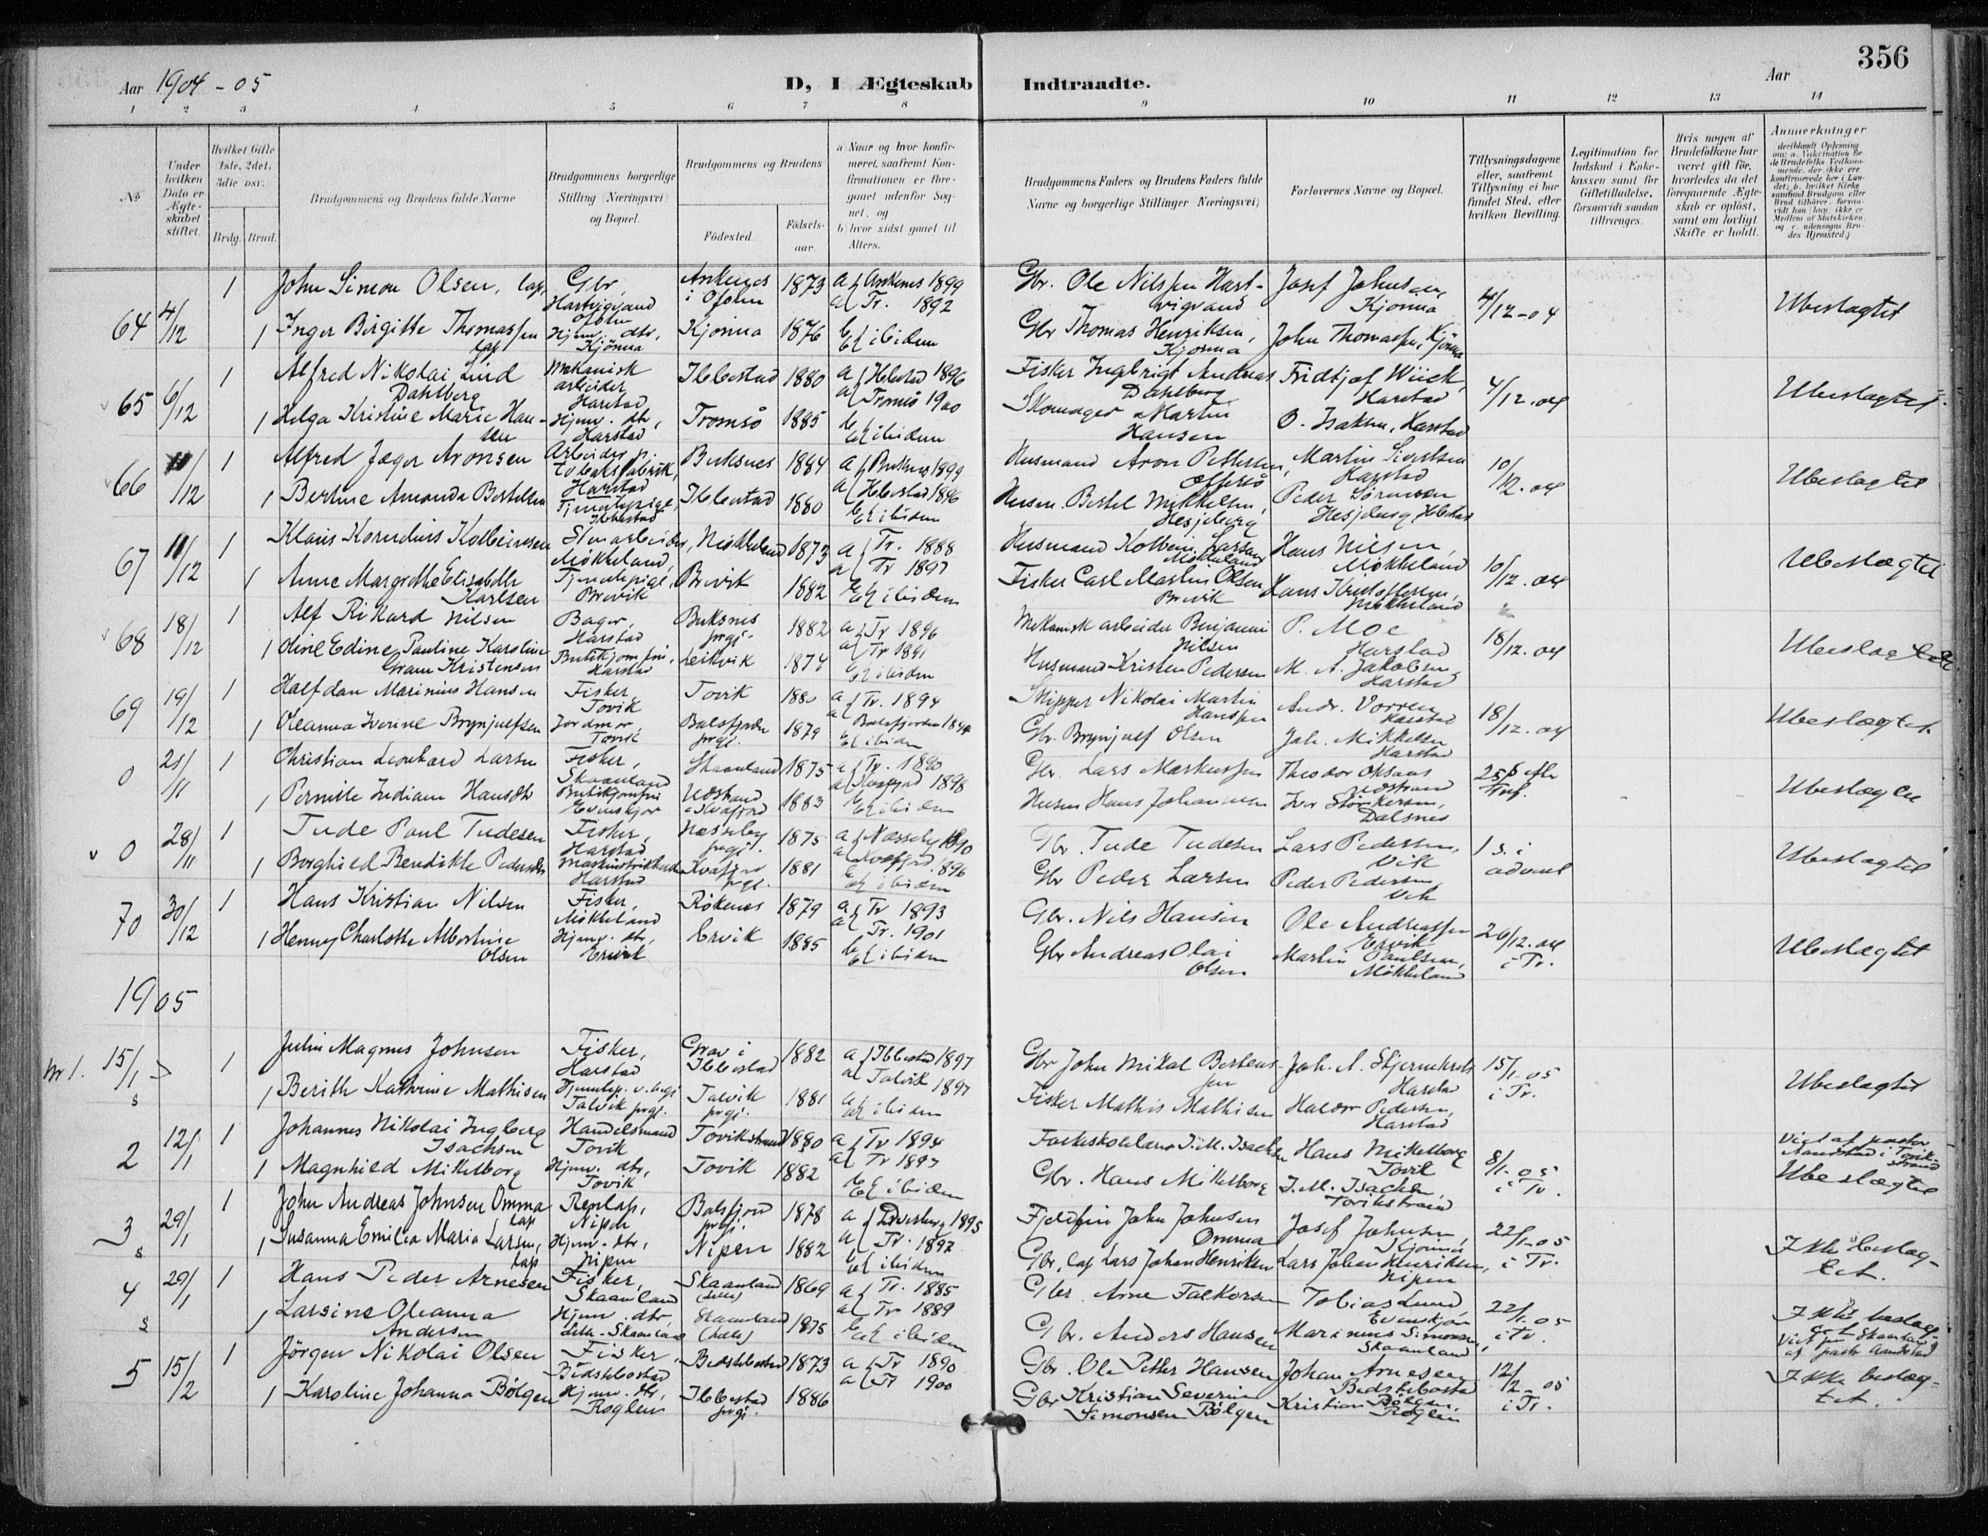 356
Aar 1904 - 05
D, I Ægteskab Indtraadte.
Aar
1 2 3 4 5 6 7 8 9 10 11 12 13 14
No.
Under hvilken Dato er Ægteskabet stiftet.
Hvilket Gifte 1ste, 2det, 3die osv.
Brdg. Brud.
Brudgommens og Brudens fulde Navne
Brudgommens borgerlige Stilling (Næringsvei) og Bopæl.
Brudgommens og Brudens
Fødested.
Fødselsaar.
a Naar og hvor konfirmeret, saafremt Konfirmationen er foregaaet udenfor Sognet, og
b hvor sidst gaaet til Alters.
Brudgommens Faders og Brudens Faders fulde Navne og borgerlige Stillinger (Næringsvei)
Forlovernes Navne og Bopæl.
Tillysningsdagene eller, saafremt Tillysning ei har fundet Sted, efter hvilken Bevilling.
Legitimation for Indskud i Enkekassen samt for Giftetilladelse, forsaavidt saadan tiltrænges.
Hvis nogen af Brudefolkene har været gift før, hvorledes da det foregaaende Ægteskab er opløst, samt om lovligt Skifte er holdt.
Anmerkninger
64 4/12 1 John Simon Olsen, lap, Gbr, Hartvigvand Ofoten Ankenes i Ofoten 1873 a { Ankenes 1899
a { Tr. 1892
Gbr. Ole Nilssen Hartvigvand Josef Johnsen, Kjønna 4/12-04 Ubeslægtet
1 Inger Birgitte Thomassen lap Hjemv. dtr, Kjønna Kjønna 1876 b { ibidem Gbr Thomas Henriksen, Kjønna John Thomassen, Kjønna
65 6/12 1 Alfred Nikolai Lind Dahlberg Mekanisk arbeider, Harstad Ibbestad 1880 a { Ibbestad 1896
a { Tromsø 1900
Fisker Ingebrigt Andreas Dahlberg Fridtjof Wiick, Harstad 4/12.04 Ubeslægtet
1 Helga Kristine Marie Hansen Hjemv. dtr, Harstad Tromsø 1885 b { ibidem Skomager Martin Hansen O. Isaksen, Harstad
66 11/12 1 Alfred Jæger Aronsen Arbeider p. tobaksfabrik, Harstad Buksnes 1884 a { Buksnes 1899
a { Ibbestad 1896
Husmand Aron Pettersen, Martin Sivertsen Harstad 10/12.04 Ubeslægtet
1 Bertine Amanda Bertelsen Tjenestepige, Ibbestad Ibbestad 1880 b { ibidem Husm. Bertel Mikkelsen, Hesjeberg Peder Sørensen Hesjeberg, Ibbestad
67 11/12 1 Klaus Kornelius Kolbeinsen Stenarbeider, Møkkeland, Møkkeland 1873 a { Tr. 1888
a { Tr 1897
Husmand Kolbein Larsen Møkkeland Hans Nilsen, Møkkeland 10/12.04 Ubeslægtet
1 Anne Margrethe Elisabeth Karlsen Tjenestepige, Brevik Brevik 1882 b { ibidem Fisker Carl Martin Olsen Brevik Hans Kristoffersen, Møkkeland
68 18/12 1 Alf Rikard Nilsen Bager, Harstad Buksnes prgj. 1882 a { Tr 1896
a { Tr 1891
Mekanisk arbeider Benjamin Nilsen P. Moe Harstad 18/12.04 Ubeslægtet
1 Oline Edine Pauline Karoline Gram Kristensen Butikjomfru, Harstad Leikvik 1874 b { ibidem Husmand Kristen Pedersen M. A. Jakobsen, Harstad
69 19/12 1 Halfdan Marinius Hansen Fisker, Tovik Tovik 1880 a { Tr. 1894
a { Balsfjorden 1894
Skipper Nikolai Martin Hanssen Andr. Vorren Harstad 18/12.04 Ubeslægtet.
1 Oleanna Iverine Brynjulfsen Jordmor Tovik Balsfjorden prgj. 1879 b { ibidem Gbr. Brynjulf Olsen Joh. Mikkelsen Harstad
0 21/11 1 Christian Leonhard Larsen Fisker, Skaanland Skaanland 1875 a { Tr. 1890
a { Kvæfjord 1898
Gbr. Lars Markussen Theodor Aksaas Udstrand Ubeslægtet
1 Pernille Indiane Hansdtr Butikjomfru Evenskjer Udstrand i Kvæfjord 1883 b { ibidem Husm Hans Johannesen Iver Størkersen, Dalsnes
0 28/11 1 Tude Paul Tudesen Fisker, Harstad Næsseby prgj. 1875 a { Næsseby 1890
a { Kvæfjord 1896
Gbr. Tude Tudesen Lars Pedersen, Vik 1 s. i advent Ubeslægtet
1 Borghild Bendikte Pedersdtr Harstad Kvæfjord prgj. 1881 b { ibidem Gbr Peder Larsen Peder Pedersen, Vik
70 30/12 1 Hans Kristian Nilsen Fisker, Møkkeland Røkenes 1879 a { Tr 1893
a { Tr. 1901
Gbr. Nils Hansen Ole Andreassen Ervik 26/12.04 i Tr. Ubeslægtet
1 Henny Charlotte Albertine Olsen Hjemv. dtr, Ervik Ervik 1885 b { ibidem Gbr Andreas Olai Olsen Martin Paulsen, Møkkeland
1905
Nr 1. 15/1 1 Julin Magnus Johnsen Fisker, Harstad Grov i Ibbestad 1882 a { Ibbestad 1897
a { Talvik 1897
Gbr John Mikal Bertenssen Joh. A. Harstad 15/1-05 i Tr. Ubeslægtet
s 1 Berith Kathrine Mathisen Talvik prgj. Talvik prgj. 1881 b { ibidem Fisker Mathis Mathisen Haldor Pedersen, Harstad
2 12/1 1 Johannes Nikolai Ingberg Isachsen Handelsmand Tovik Tovikstrand 1880 a { Tr 1894
a { Tr 1897
Folkeskolelærer I. M. Isachsen Hans Mikkelborg Tovik 8/1-05 i Tr. Viet af pastor Aandstad i Tovikstrand
Ubeslægtet
1 Magnhild Mikkelborg Hjemv. dtr, Tovik Tovik 1882 b { ibidem Gbr. Hans Mikkelborg I. M. Isachsen, Tovikstrand
3 29/1 1 John Andreas Johnsen Omma lap Renlap, Nipen Balsfjord prgj. 1878 a { 1895
a { Tr. 1897
Fjeldfin John Johnsen Omma Josef Johnsen, Kjønna 22/1-05 i Tr. Ikke beslægtet.
s 1 Susanna Emilia Maria Larsen, lap Hjemv. dtr, Nipen Nipen 1882 b { ibidem Gbr, lap Lars Johan Henriksen Lars Johan Henriksen, Nipen
4 29/1 1 Hans Peder Arnesen Fisker, Skaanland Skaanland (Lille) 1869 a { Tr. 1885
a { Tr 1889
Gbr. Arne Falkorsen Tobias Lund, Evenskjer 22/1-05 i Tr. Ikke beslægtet
Viet paa Skaanland af pastor Aandstad
s 1 Larsine Oleanna Andersen Hjemv. dtr, Lille-Skaanland Skaanland (Lille) 1875 b { ibidem Gbr. Anders Hansen Marinius Simonsen, Skaanland
5 15/2 1 Jørgen Nikolai Olsen Fisker Bedstebostad Bedstebostad 1873 a { Tr 1890
a { Tr 1900
Gbr. Ole Petter Hansen Johan Arnesen Bedstebostad 12/2-05 i Tr. Ikke beslægtet.
1 Karoline Johanna Bølgen Hjemv. dtr, Roglen Ibbestad prgj. 1886 Gbr Kristian Severin Simonsen Bølgen Kristian Bølgen, Roglen